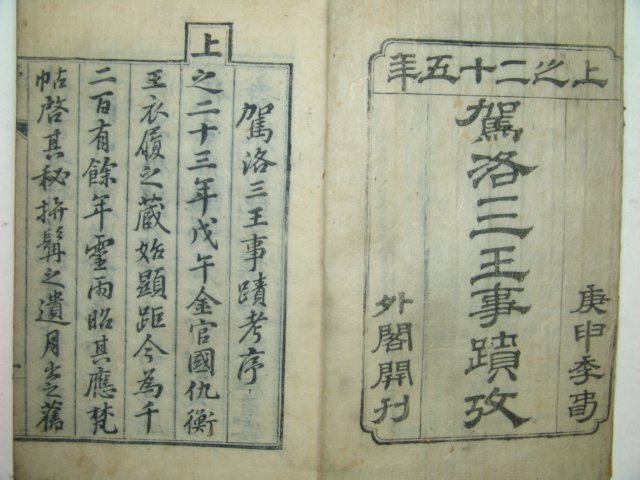 上之二十五年
庚申季春
駕洛三王事蹟攷
外閣開刊
駕洛三王事蹟考序
上
之二十三年戊午金官國仇衡
王衣履之蔵始顯距今為千
二百有餘年靈雨昭其應梵
帖啓其秘拚髯之遺月出之舊